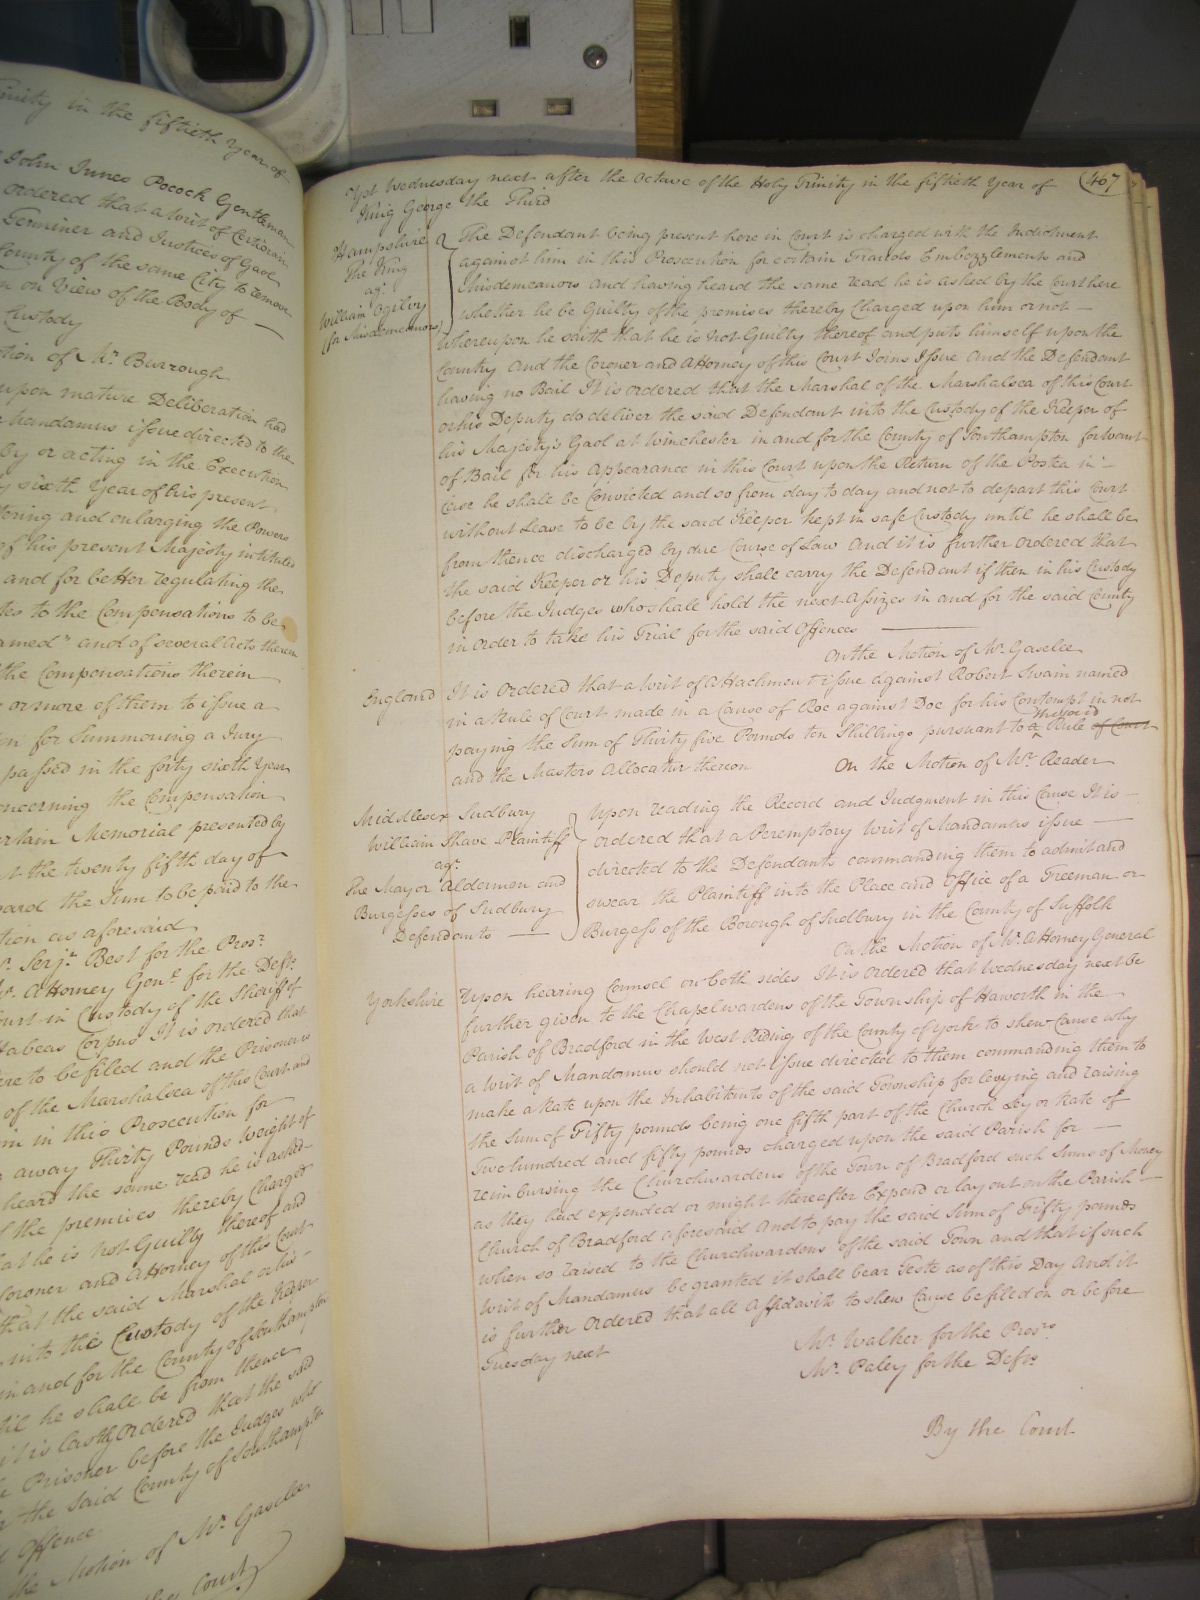 Trinity in the fiftieth Year of
John Innes Pocock Gentleman
ordered that a Writ of Certiorari
Terminer and Justices of Gaol
County of the same City to remove
on View of the Body of —
Custody
tion of Mr. Burrough
upon mature Deliberation had
Mandamus issue directed to the
by or acting in the Execution
sixth Year of his present
tering and enlarging the Powers
of his present Majesty intituled
and for better regulating the
tes to the Compensations to be
amed" and of several Acts therein
the Compensations therein
or more of them to issue a
on for Summoning a Jury
passed in the forty sixth Year
oncerning the Compensation
ertain Memorial presented by
t the twenty fifth day of
ward the Sum to be paid to the
tion as aforesaid
Mr. Serjt. Best for the Prosr.
Mr. Attorney Genl. for the Defts.
Court in Custody of the Sheriff of
Habeas Corpus It is ordered that
ere to be filed and the Prisoner is
of the Marshalsea of this Court and
him in this Prosecution for
away Thirty Pounds Weight of
heard the same read he is asked
of the premises thereby Charged
that he is not Guilty thereof and
Coroner and Attorney of this Court
that the said Marshal or his
into the Custody of the Keeper
in and for the County of Southampton
til he shall be from thence
it is lastly Ordered that the said
Prisoner before the Judges who
the said County of Southampton
Offence
the Motion of Mr. Gaselee
the Court
Yet Wednesday next after the Octave of the Holy Trinity in the fiftieth Year of 407
King George the Third
Hampshire
The King
agt.
William Ogilvy
(for Misdemeanors)
The Defendant being present here in Court is charged with the Indictment
against him in this Prosecution for certain Frauds Embezzlements and
Misdemeanors and having heard the same read he is asked by the Court here
whether he be Guilty of the premises thereby Charged upon him or not —
Whereupon he saith that he is not Guilty thereof and puts himself upon the
Country And the Coroner and Attorney of this Court Joins Issue And the Defendant
having no Bail It is ordered that the Marshal of the Marshalsea of this Court
or his Deputy do deliver the said Defendant into the Custody of the Keeper of
his Majesty's Gaol at Winchester in and for the County of Southampton for want
of Bail for his Appearance in this Court upon the Return of the Postea in —
Case he shall be Convicted and so from day to day and not to depart this Court
without Leave to be by the said Keeper kept in safe Custody until he shall be
from thence discharged by due Course of Law And it is further Ordered that
the said Keeper or his Deputy shall carry the Defendant if then in his Custody
before the Judges who shall hold the next Assizes in and for the said County
in Order to take his Trial for the said Offences —
On the Motion of Mr. Gaselee
England It is Ordered that a Writ of Attachment issue against Robert Swain named
in a Rule of Court made in a Cause of Roe against Doe for his Contempt in not
paying the Sum of Thirty five Pounds ten Shillings pursuant to a the said Rule of Court
and the Masters Allocatur thereon On the Motion of Mr. Reader
Middlesex Sudbury
William Shave Plaintiff
agt.
The Mayor Aldermen and
Burgesses of Sudbury
Defendants —
Upon reading the Record and Judgment in this Cause It is —
ordered that a Peremptory Writ of Mandamus issue —
directed to the Defendants commanding them to admit and
swear the Plaintiff into the Place and Office of a Freeman or
Burgess of the Borough of Sudbury in the County of Suffolk
On the Motion of Mr. Attorney General
Yorkshire Upon hearing Counsel on both sides It is Ordered that Wednesday next be
further given to the Chapelwardens of the Township of Haworth in the
Parish of Bradford in the West Riding of the County of York to shew Cause why
a Writ of Mandamus should not issue directed to them commanding them to
make a Rate upon the Inhabitants of the said Township for levying and raising
the Sum of Fifty pounds being one fifth part of the Church Ley or Rate of
Two hundred and fifty pounds charged upon the said Parish for —
reimbursing the Churchwardens of the Town of Bradford such Sums of Money
as they had expended or might thereafter Expend or lay out on the Parish —
Church of Bradford aforesaid And to pay the said Sum of Fifty pounds
when so raised to the Churchwardens of the said Town and that if such
Writ of Mandamus be granted it shall bear Teste as of this Day And it
is further Ordered that all Affidavits to shew Cause be filed on or before
Tuesday next
Mr. Walker for the Prosrs.
Mr. Paley for the Defts.
By the Court